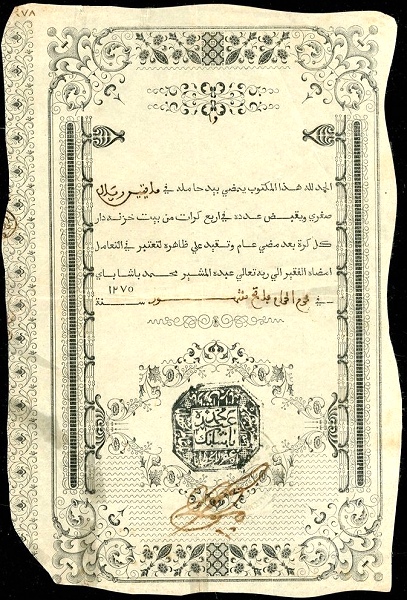 ٢٧٨
الحمد لله هذا المكتوب يمضي بيد حامله في مايتين ريال
صغرى ويقبض عدده في اربع كرات من بيت خزنه دار
كل كرة بعد مضي عام وتقيد على ظاهره لتعتبر في التعامل
امضاه الفقير الى ربه تعالى عبده المشير محمد باشا باي
في محرم الحرام فاتح شهور سنة ١٢٧٥